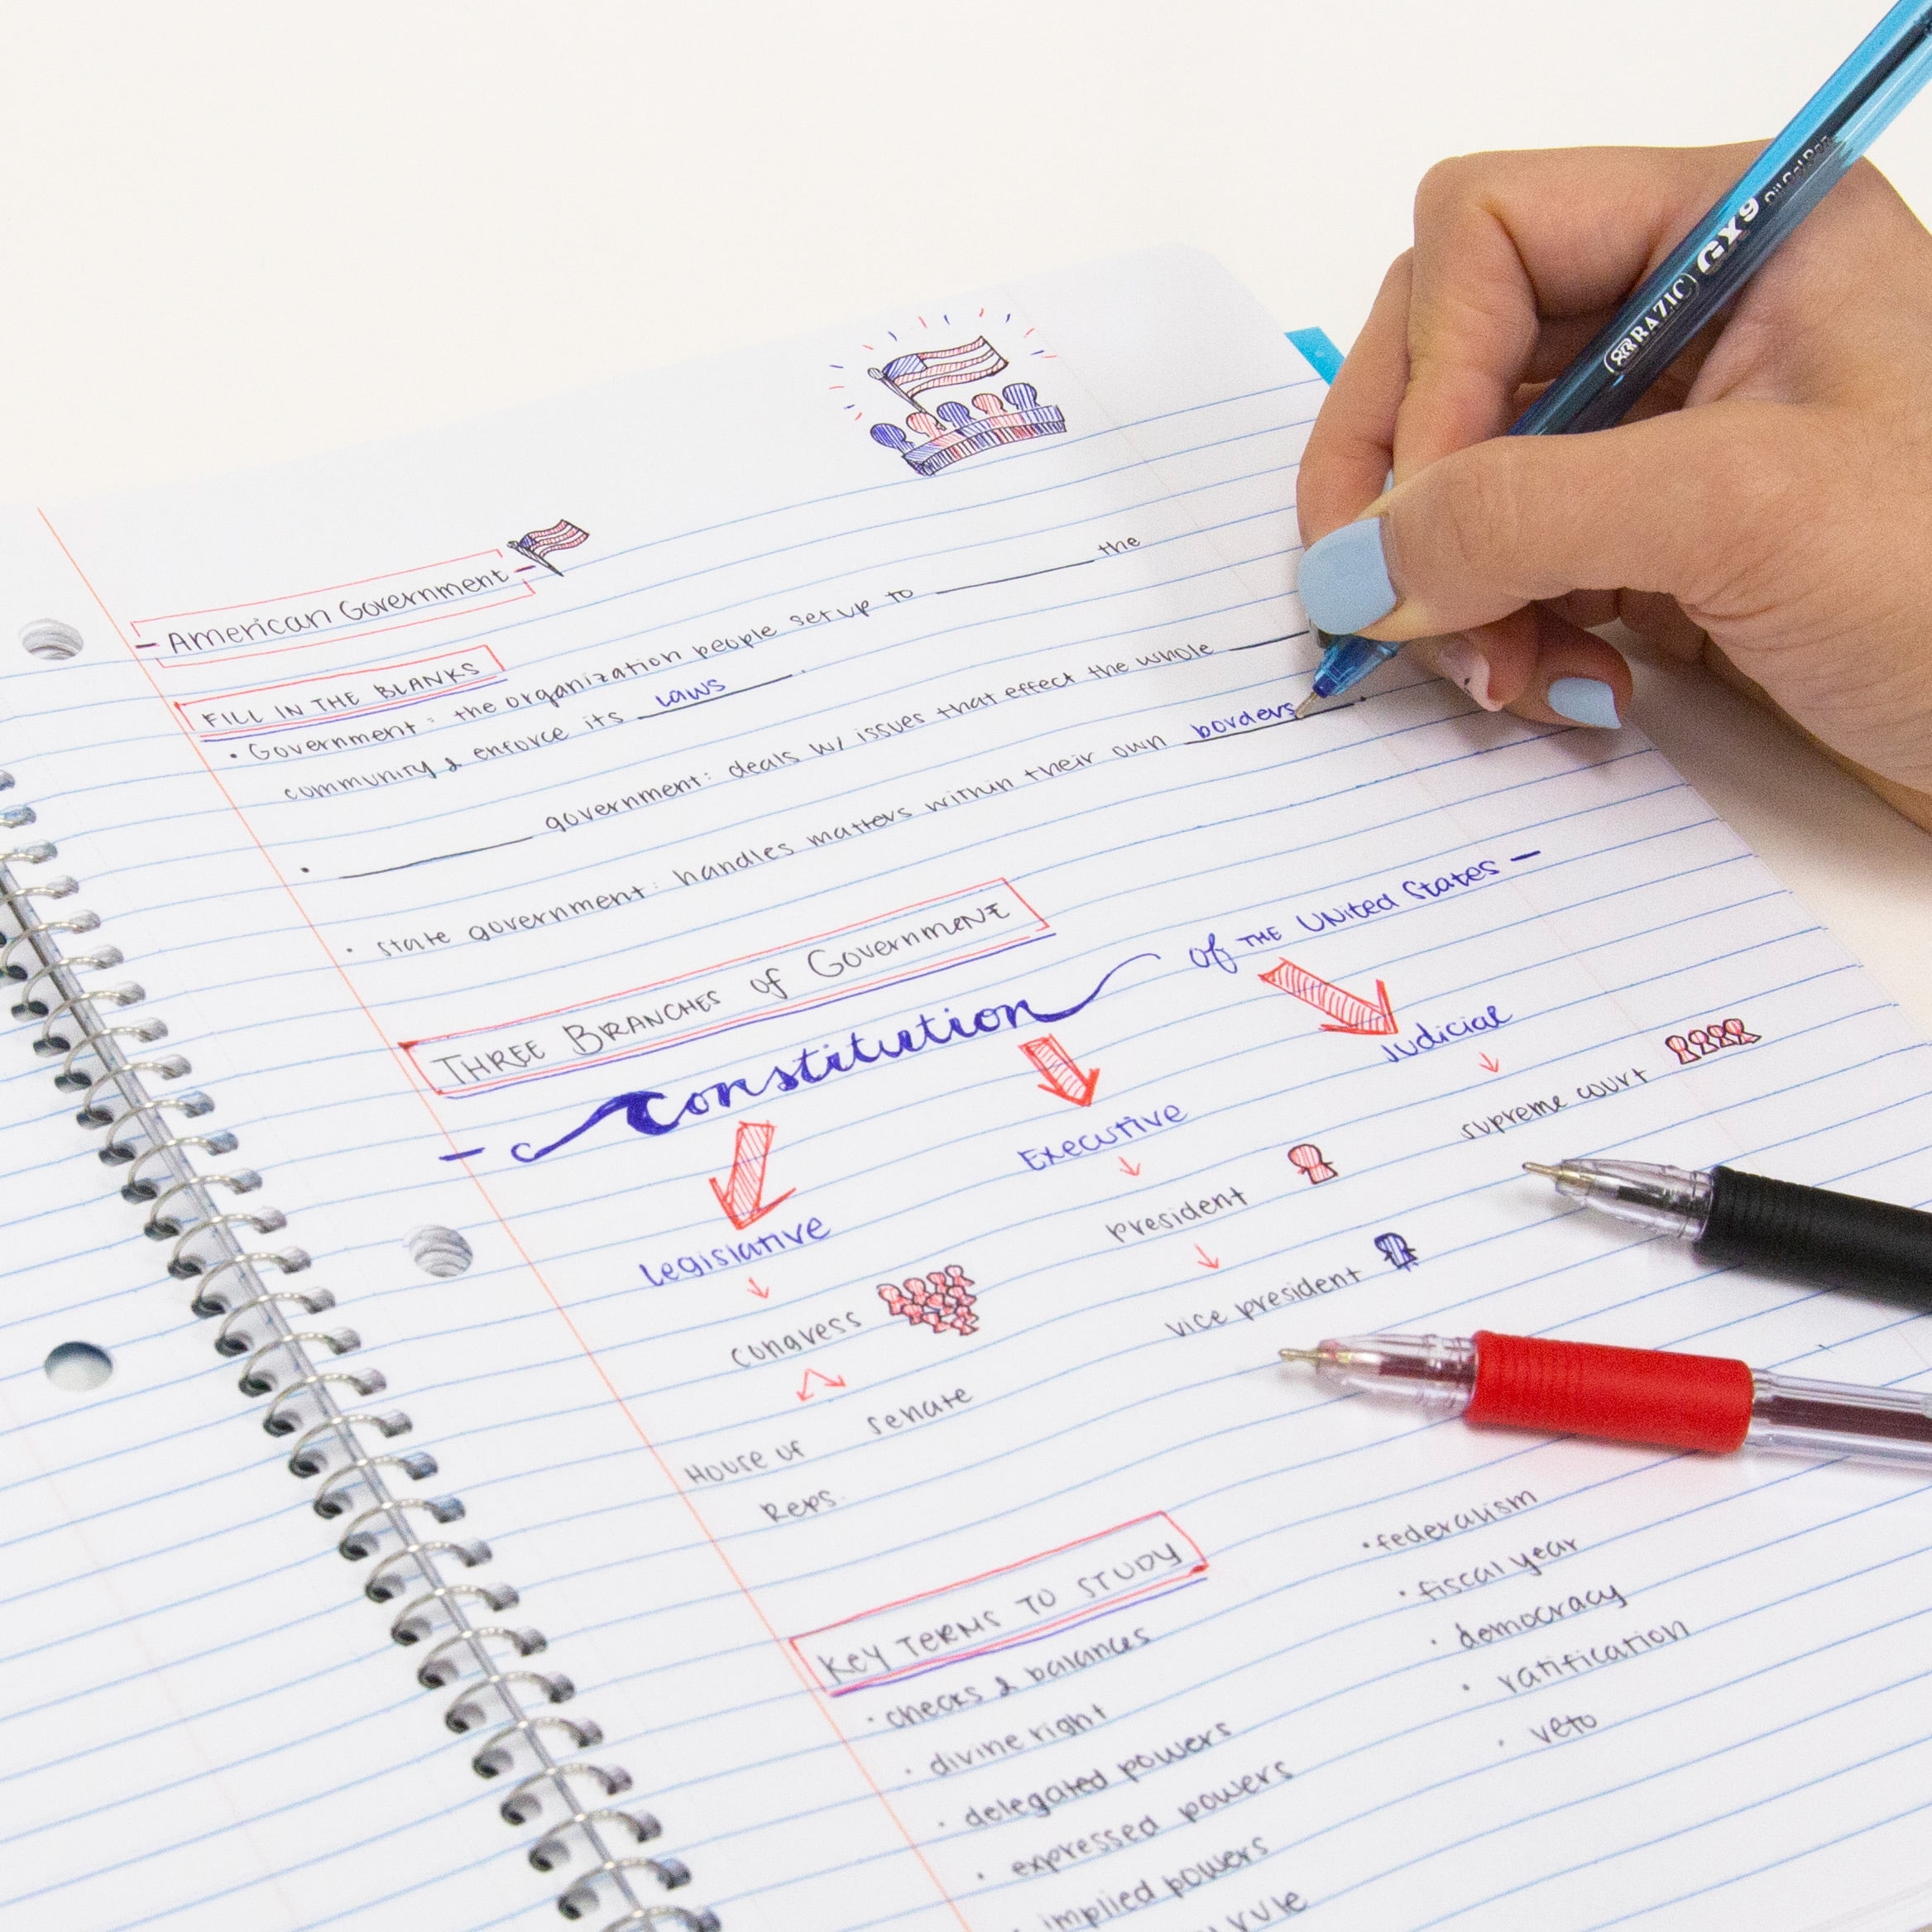 BAZIC GX9 Oil Gel Pen
- American Government -
FILL IN THE BLANKS
• Government: the organization people set up to ________ the
community & enforce its laws.
• ________ government: deals w/ issues that effect the whole ________
• state government: handles matters within their own borders.
THREE BRANCHES of GOVERNMENT
- Constitution of THE UNITED STATES -
Legislative
Executive
Judicial
congress
president
supreme court
House of Reps.
senate
vice president
KEY TERMS TO STUDY
• checks & balances
• divine right
• delegated powers
• expressed powers
• implied powers
rule
• federalism
• fiscal year
• democracy
• ratification
• veto